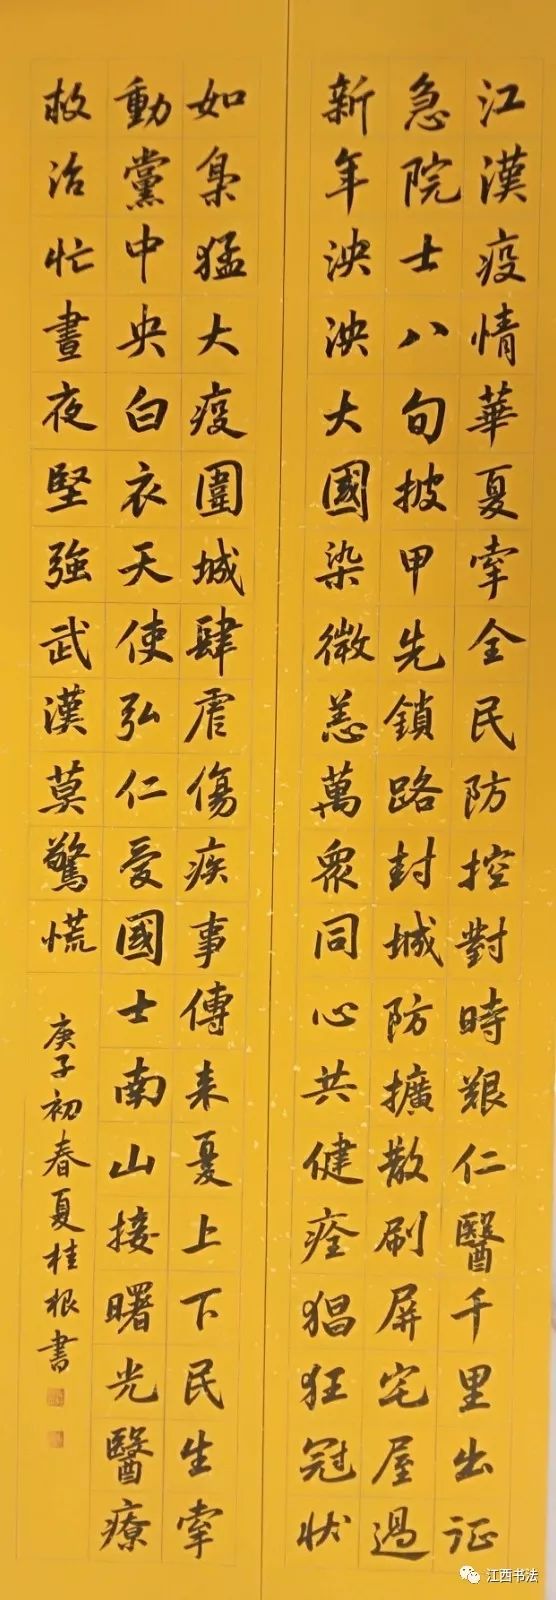 江漢疫情華夏牽全民防控對時艱仁醫千里出征
急院士八旬披甲先鎖路封城防擴散刷屏宅屋過
新年泱泱大國染微恙萬眾同心共健痊猖狂冠狀
如梟猛大疫圍城肆虐傷疾事傳来憂上下民生牽
動黨中央白衣天使弘仁愛國士南山接曙光醫療
救治忙晝夜堅強武漢莫驚慌
庚子初春夏桂根書
江西书法